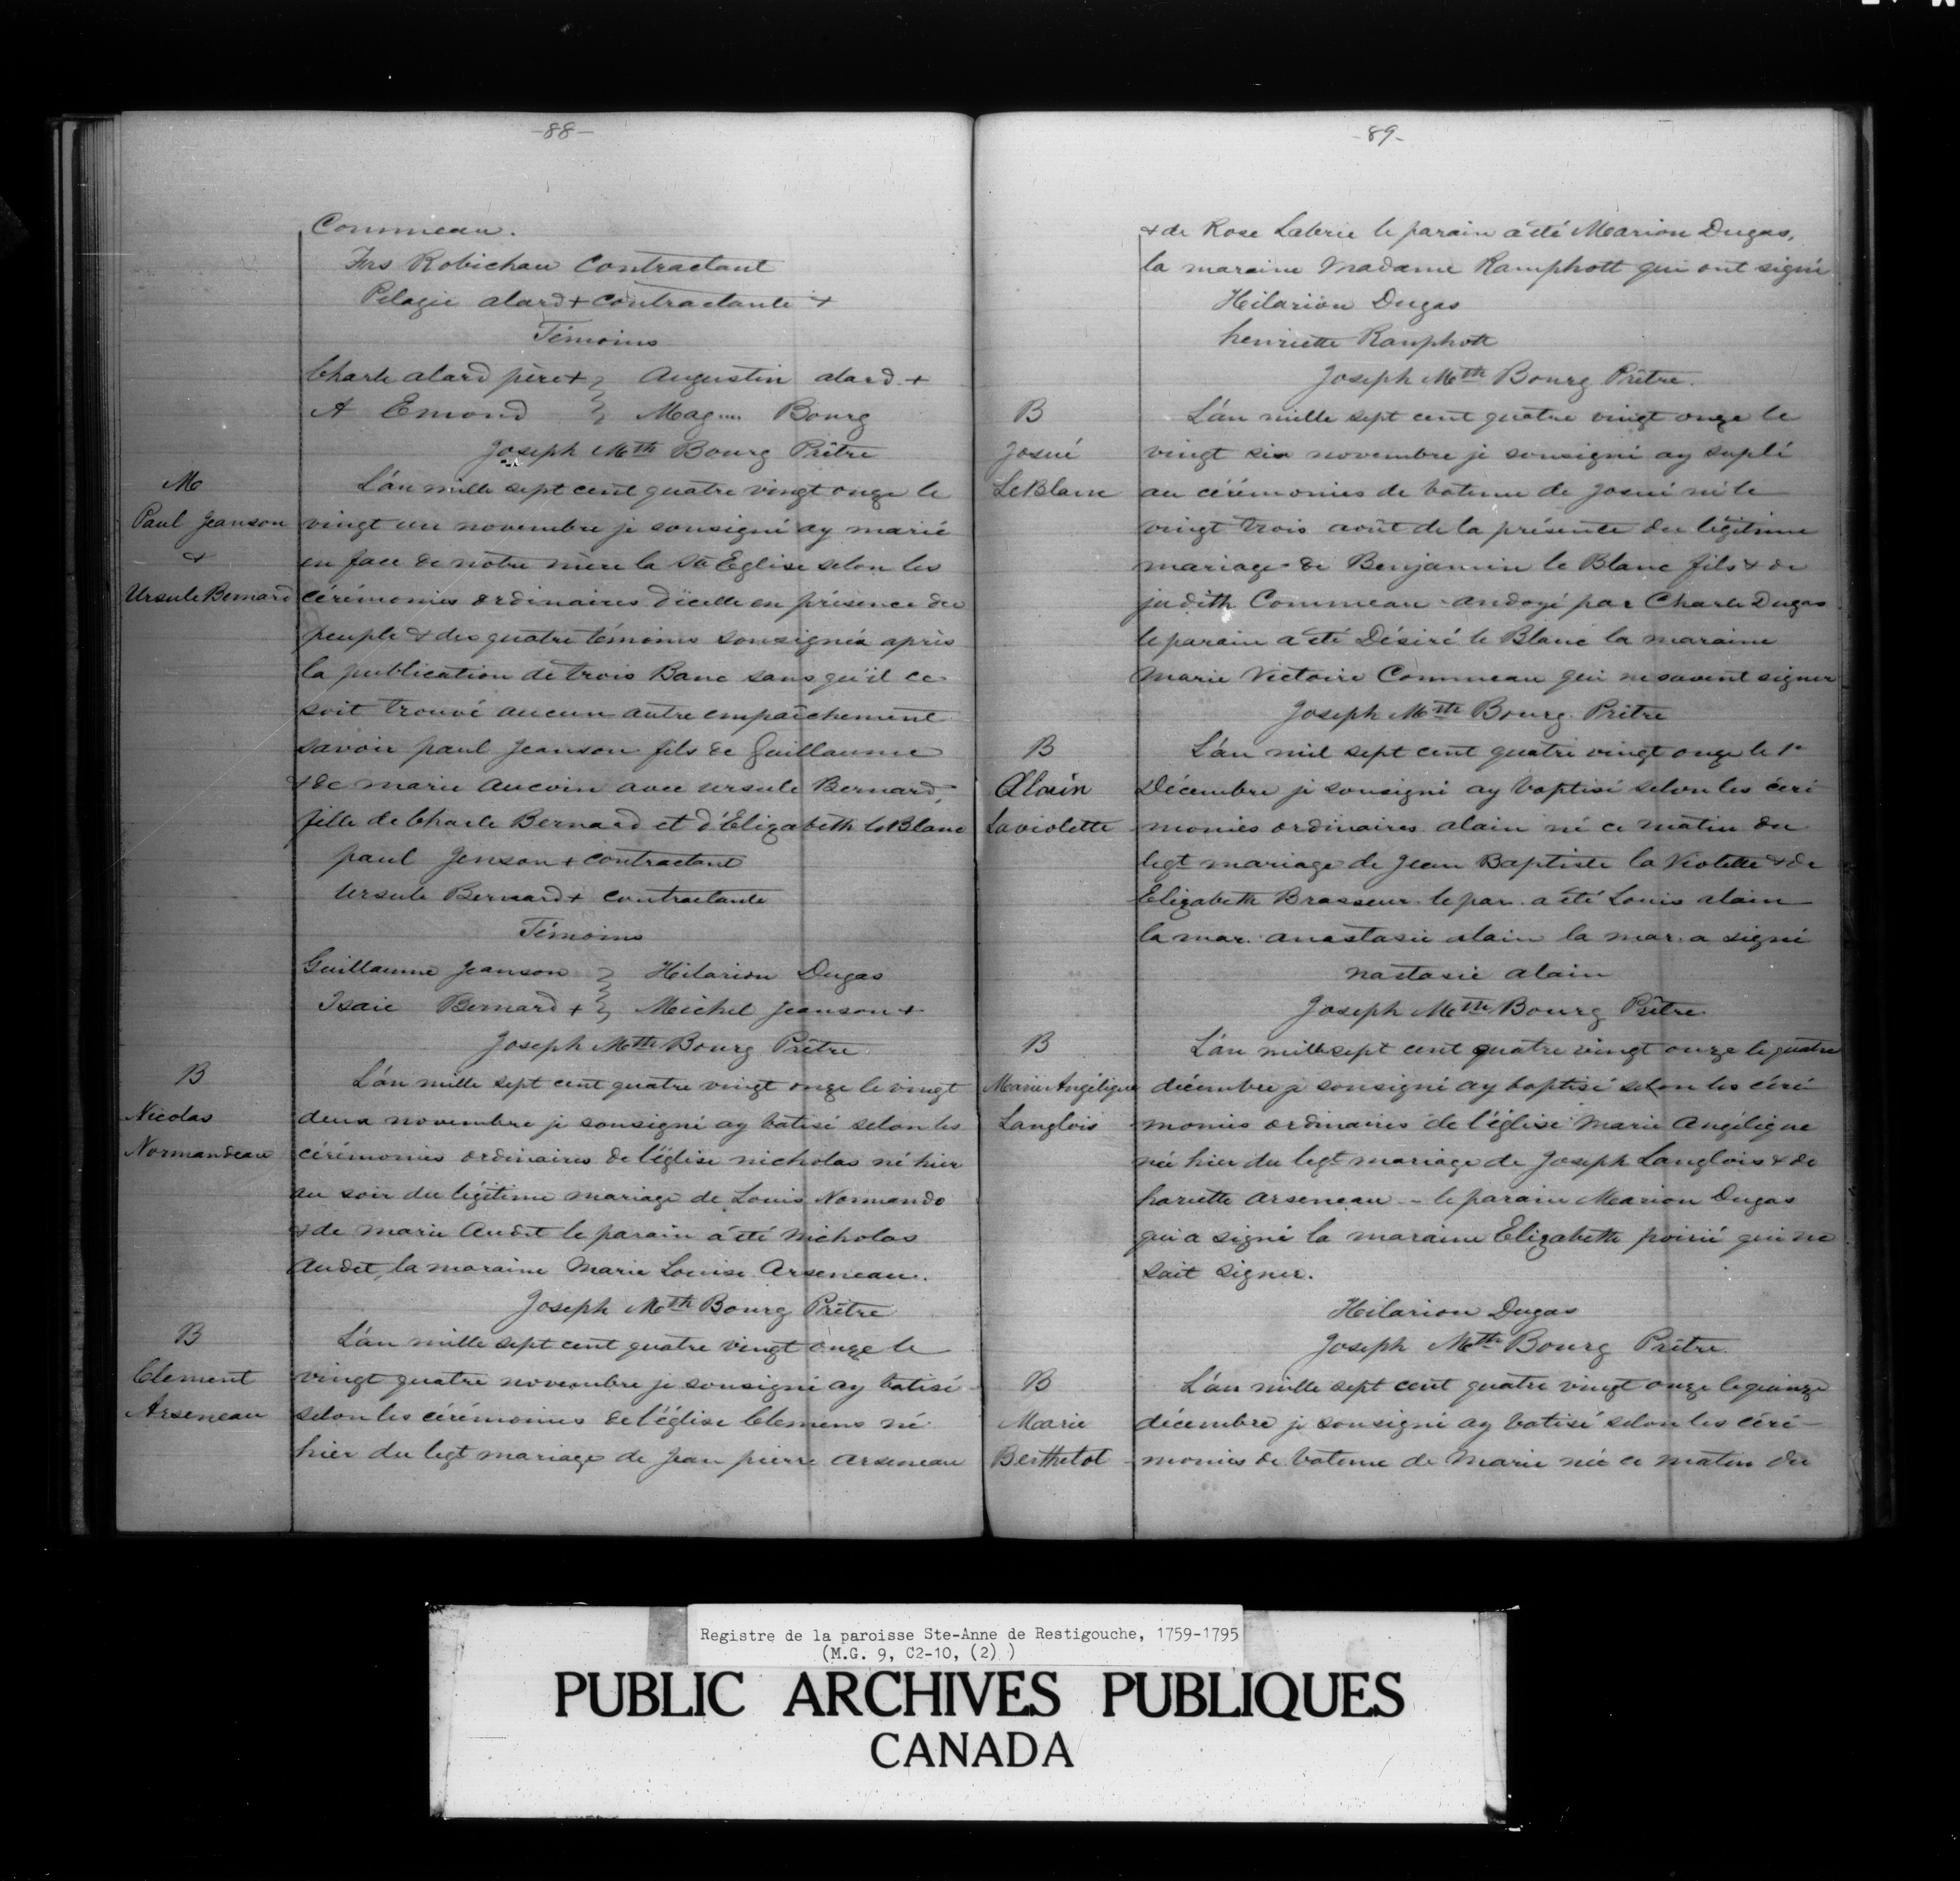 -88-
Commeau.
Frs Robichau Contractant
Pelagie alard + contractante +
Témoins
Charle alard père + } Augustin alard +
A Emond } Magnn Bourg
Joseph Mth Bourg Prêtre
M
Paul Jeanson
&
Ursule Bernard
L'an mille sept cent quatre vingt onze le
vingt un novembre je sousigné ay marié
en face de notre mère la Ste Eglise selon les
cérémonies ordinaires d'icelle en présence du
peuple & des quatre témoins sousignés après
la publication de trois Banc sans qu'il ce
soit trouvé aucun autre empaîchement
savoir paul Jeanson fils de Guillaume
& de marie Aucoin avec ursule Bernard,
fille de Charle Bernard et d'Elizabeth leBlanc
paul Jenson + contractant
ursule Bernard + contractante
Témoins
Guillaume Jeanson } Hilarion Dugas
Isaie Bernard + } Michel Jeanson +
Joseph Mtth Bourg Prêtre
B
Nicolas
Normandeau
L'an mille sept cent quatre vingt onze le vingt
deux novembre je sousigné ay batisé selon les
cérémonies ordinaires de l'église nicholas né hier
au soir du légitime mariage de Louis Normando
& de marie Audet le parain a été Nicholas
Audet, la maraine Marie Louise Arseneau.
Joseph Mth Bourg Prêtre
B
Clement
Arseneau
L'an mille sept cent quatre vingt onze le
vingt quatre novembre je sousigné ay batisé
selon les cérémonies de l'église Clemens né
hier du legt mariage de Jean pierre Arseneau
-89-
& de Rose Laterie le parain a été Marion Dugas,
la maraine Madame Ramphott qui ont signé
Hilarion Dugas
henriette Ramphott
Joseph Mth Bourg Prêtre.
B
Josué
LeBlanc
L'an mille sept cent quatre vingt onze le
vingt six novembre je sousigné ay suplé
au cérémonies de bateme de Josué né le
vingt trois août de la présente du légitime
mariage de Benjamin le Blanc fils & de
judith Commeau andoyé par Charle Dugas
le parain a été Désiré le Blanc la maraine
Marie Victoire Commeau qui ne savent signer
Joseph Mth Bourg Prêtre
B
Alain
Laviolette
L'an mil sept cent quatre vingt onze le 1e
Décembre je sousigné ay baptisé selon les céré
monies ordinaires alain né ce matin du
legt mariage de Jean Baptiste la Violette & de
Elizabeth Brasseur le par. a été Louis alain
la mar. anastasie alain la mar. a signé
nastasie alain
Joseph Mth Bourg Prêtre
B
Marie Angélique
Langlois
L'an mille sept cent quatre vingt onze le quatre
décembre je sousigné ay baptisé selon les céré
monies ordinaires de l'église Marie Angélique
née hier du legt mariage de Joseph Langlois & de
hariette Arseneau - le parain Marion Dugas
qui a signé la maraine Elizabeth poirié qui ne
sait signer.
Hilarion Dugas
Joseph Mth Bourg Prêtre
B
Marie
Berthelot
L'an mille sept cent quatre vingt onze le quinze
décembre je sousigné ay batisé selon les céré-
monies de bateme de Marie née ce matin du
Registre de la paroisse Ste-Anne de Restigouche, 1759-1795
(M.G. 9, C2-10, (2) )
PUBLIC ARCHIVES PUBLIQUES
CANADA